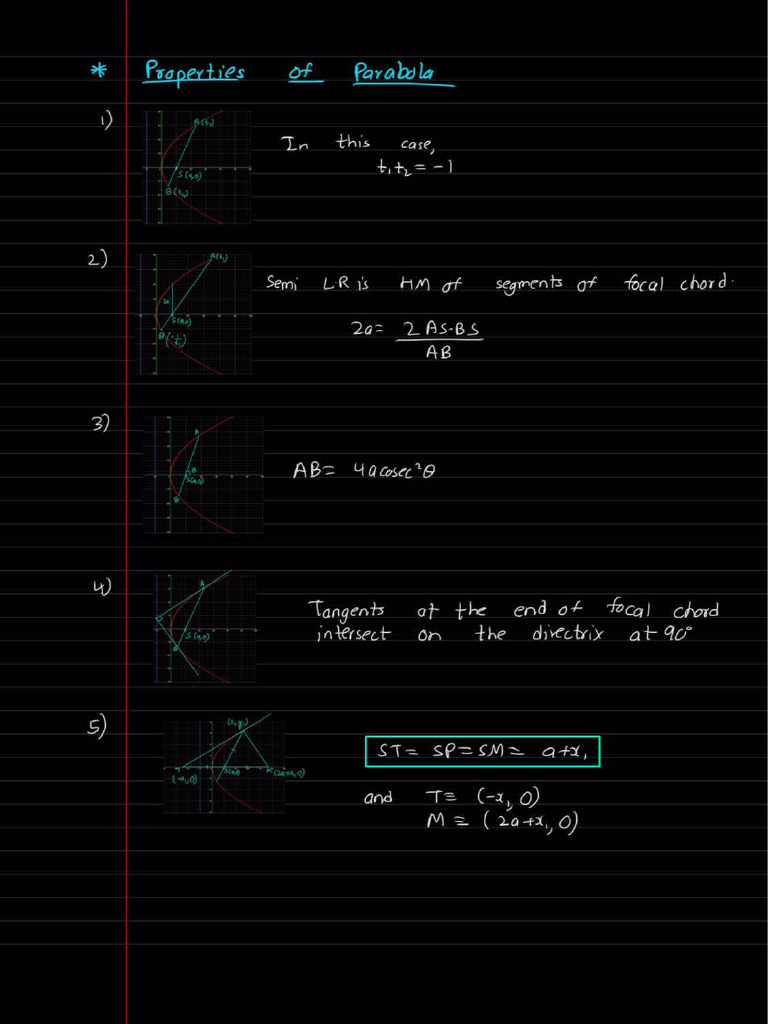 * Properties of Parabola
1)
A(t₁)
S(a,0)
B(t₂)
In this case,
t₁t₂ = -1
2)
A(t₁)
2a
S(a,0)
B(-1/t₁)
Semi L·R is HM of segments of focal chord.
2a = 2 AS·BS / AB
3)
A
θ
S(a,0)
B
AB = 4a cosec²θ
4)
A
S(a,0)
B
Tangents at the end of focal chord
intersect on the directrix at 90°
5)
(x₁,y₁)
T
(-x₁,0)
S(a,0)
(2a+x₁,0)
ST = SP = SM = a+x₁
and T ≡ (-x₁, 0)
M ≡ (2a+x₁, 0)